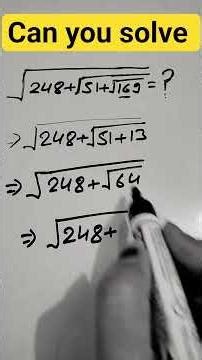 Can you solve
√248+√51+√169 = ?
⇒ √248+√51+13
⇒ √248+√64
⇒ √248+